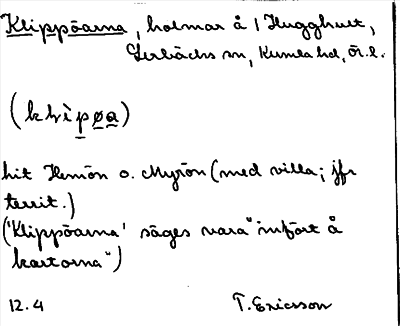 Klippöarna, holmar å 1 Hugghult,
Lerbäcks sn, Kumla hd, Ör. l.
(klìpøa)
hit Hemön o. Myrön (med villa; jfr
territ.)
('Klippöarna' säges vara "infört å
kartorna")
12.4 T. Ericsson